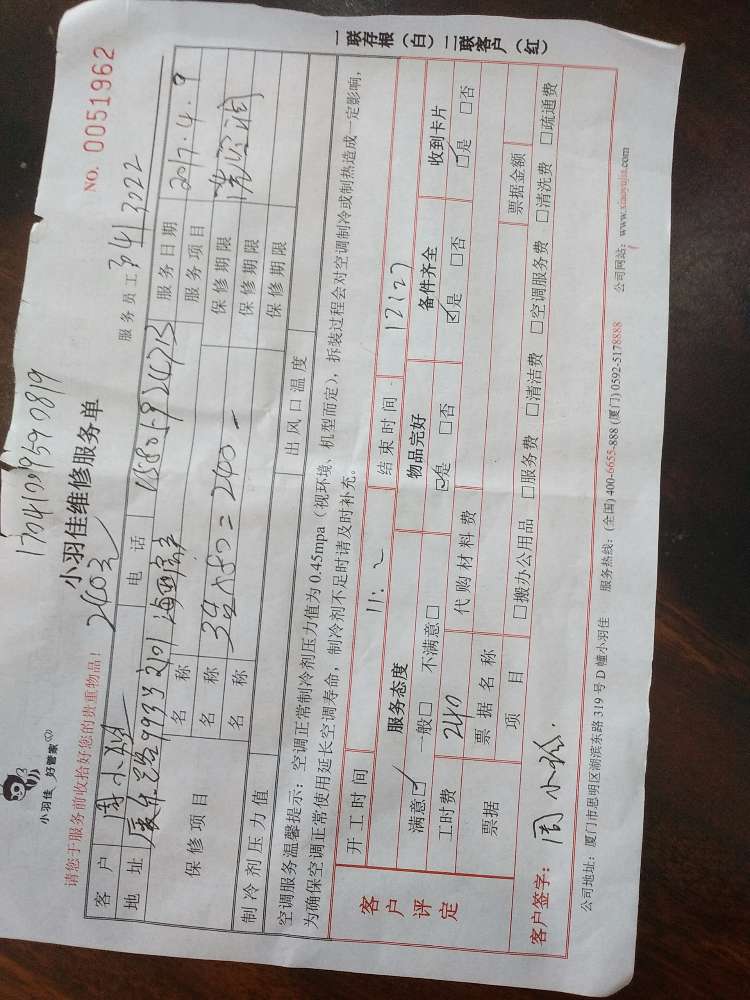 17041209590819
小羽佳 好管家
小羽佳维修服务单
NO. 0051962
请您于服务前收拾好您的贵重物品！
2403
服务员工 3141 3022
客户 周小
电话
服务日期 2017.4.9
地址 993号2101
服务项目
保修项目
名称
保修期限
名称 3×80=240-
保修期限
名称
保修期限
制冷剂压力值
出风口温度
空调服务温馨提示：空调正常制冷剂压力值为 0.45mpa（视环境、机型而定），拆装过程会对空调制冷或制热造成一定影响，
为确保空调正常使用延长空调寿命，制冷剂不足时请及时补充。
客户评定
开工时间 11:2
结束时间 12(27
服务态度
物品完好
备件齐全
收到卡片
满意☑ 一般□ 不满意□
☑是 □否
☑是 □否
☑是 □否
工时费 240
代购材料费
票据
票据名称
票据金额
项目
□搬办公用品 □服务费 □清洁费 □空调服务费 □清洗费 □疏通费
客户签字：周小
公司地址：厦门市思明区湖滨东路 319 号 D 幢小羽佳 服务热线：(全国) 400-6655-888 (厦门) 0592-5178888 公司网站：www.xiaoyujia.com
一联存根（白）二联客户（红）